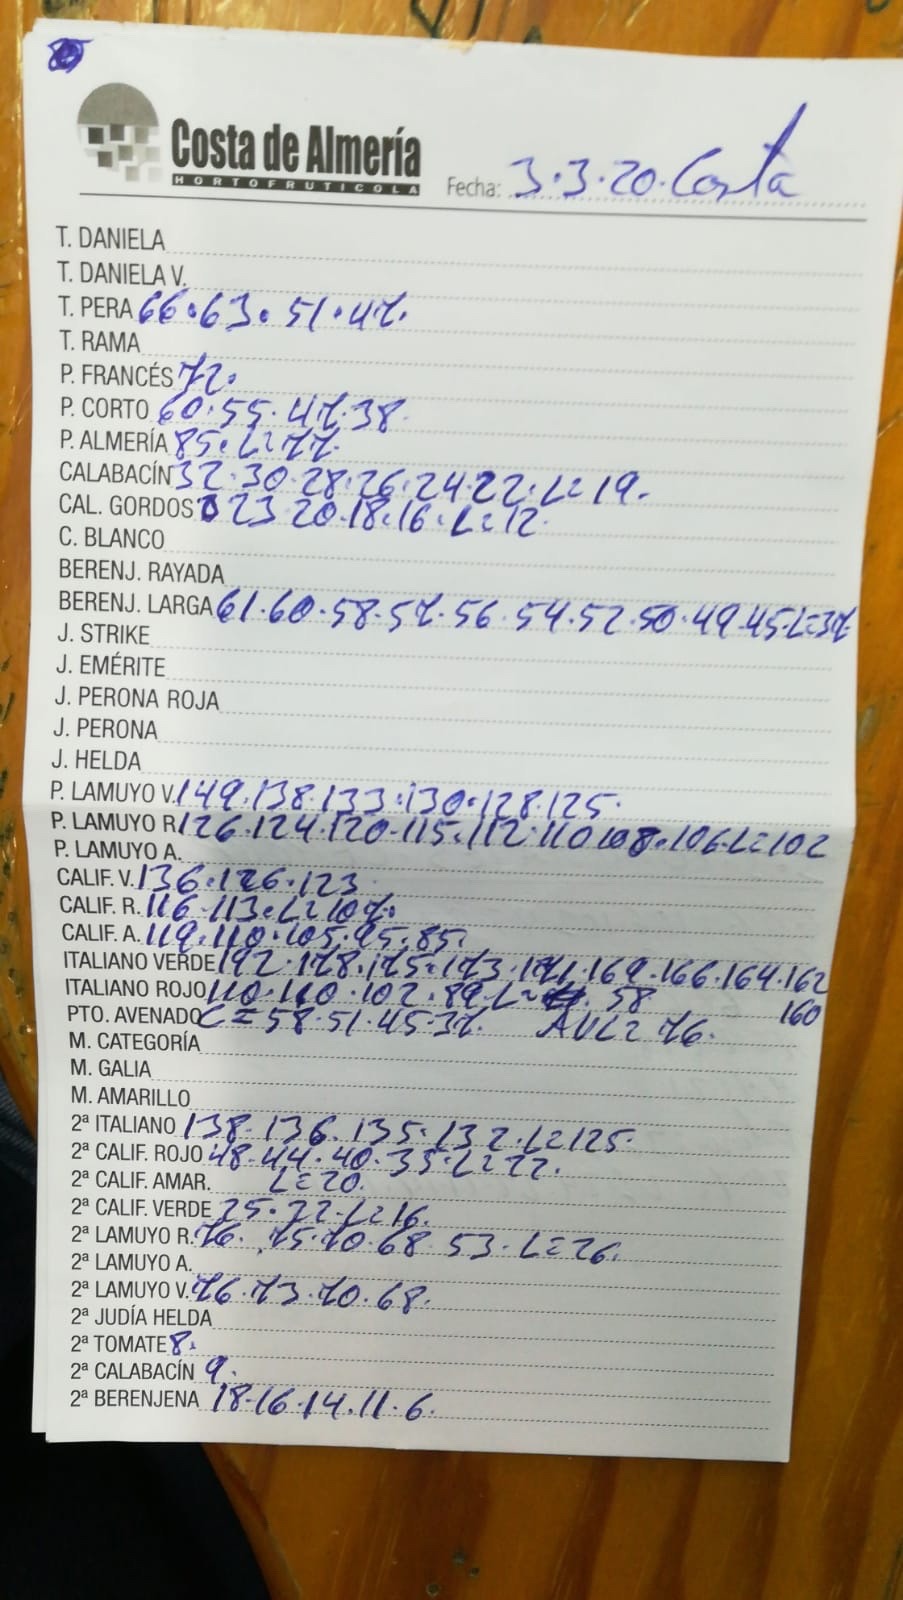 Costa de Almería
HORTOFRUTICOLA
Fecha: 3.3.20. Costa
T. DANIELA
T. DANIELA V.
T. PERA 66.63.51.47.
T. RAMA
P. FRANCÉS 72.
P. CORTO 60.55.47.38.
P. ALMERÍA 85.L=77.
CALABACÍN 32.30.28.26.24.22.L=19.
CAL. GORDOS 23.20.18.16.L=12.
C. BLANCO
BERENJ. RAYADA
BERENJ. LARGA 61.60.58.57.56.54.52.50.49.45.L=37
J. STRIKE
J. EMÉRITE
J. PERONA ROJA
J. PERONA
J. HELDA
P. LAMUYO V. 149.138.133.130.128.125.
P. LAMUYO R. 126.124.120.115.112.110.108.106.L=102
P. LAMUYO A.
CALIF. V. 136.126.123
CALIF. R. 116.113.L=107.
CALIF. A. 119.110.105.95.85.
ITALIANO VERDE 192.178.175.173.171.169.166.164.162
160
ITALIANO ROJO 110.110.102.89.L= 58
PTO. AVENADO C=58.51.45.37. AVL=76.
M. CATEGORÍA
M. GALIA
M. AMARILLO
2ª ITALIANO 138.136.135.132.L=125.
2ª CALIF. ROJO 48.44.40.35.L=22.
2ª CALIF. AMAR. L=20.
2ª CALIF. VERDE 25.22.L=16.
2ª LAMUYO R. 76. 75.70.68.53.L=26.
2ª LAMUYO A.
2ª LAMUYO V. 76.73.70.68.
2ª JUDÍA HELDA
2ª TOMATE 8.
2ª CALABACÍN 9.
2ª BERENJENA 18.16.14.11.6.